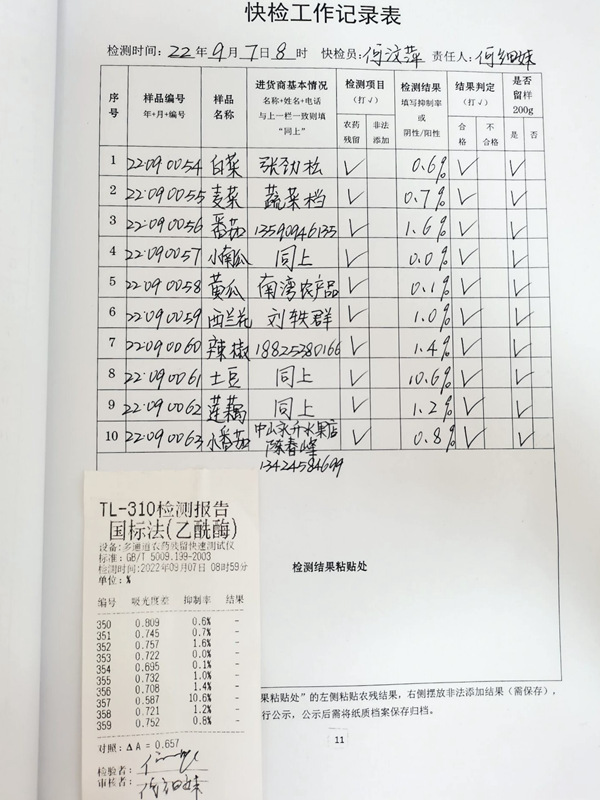 快检工作记录表
检测时间: 22 年 9 月 7 日 8 时 快检员: 何汶萍 责任人: 何细妹
序号 样品编号 年+月+编号 样品名称 进货商基本情况 名称+姓名+电话 与上一栏一致则填“同上” 检测项目 (打√) 农药残留 非法添加 检测结果 填写抑制率 或 阴性/阳性 结果判定 (打√) 合格 不合格 是否留样 200g 是 否
1 22090054 白菜 张劲松 √ 0.6% √ √
2 22090055 麦菜 蔬菜档 √ 0.7% √ √
3 22090056 番茄 13590946135 √ 1.6% √ √
4 22090057 小南瓜 同上 √ 0.0% √ √
5 22090058 黄瓜 南湾农产品 √ 0.1% √ √
6 22090059 西兰花 刘轶群 √ 1.0% √ √
7 22090060 辣椒 18825380166 √ 1.4% √ √
8 22090061 土豆 同上 √ 10.6% √ √
9 22090062 莲藕 同上 √ 1.2% √ √
10 22090063 小番茄 中山永升水果店 陈春峰 √ 0.8% √ √
13424584699
检测结果粘贴处
TL-310检测报告
国标法(乙酰酶)
设备:多通道农药残留快速测试仪
标准: GB/T 5009.199-2003
检测时间:2022年09月07日 08时59分
单位: %
编号 吸光度差 抑制率 结果
350 0.809 0.6% -
351 0.745 0.7% -
352 0.757 1.6% -
353 0.722 0.0% -
354 0.695 0.1% -
355 0.732 1.0% -
356 0.708 1.4% -
357 0.587 10.6% -
358 0.721 1.2% -
359 0.752 0.8% -
对照: ΔA = 0.657
检验者:
审核者: 何细妹
果粘贴处”的左侧粘贴农残结果，右侧摆放非法添加结果（需保存），
行公示，公示后需将纸质档案保存归档。
11